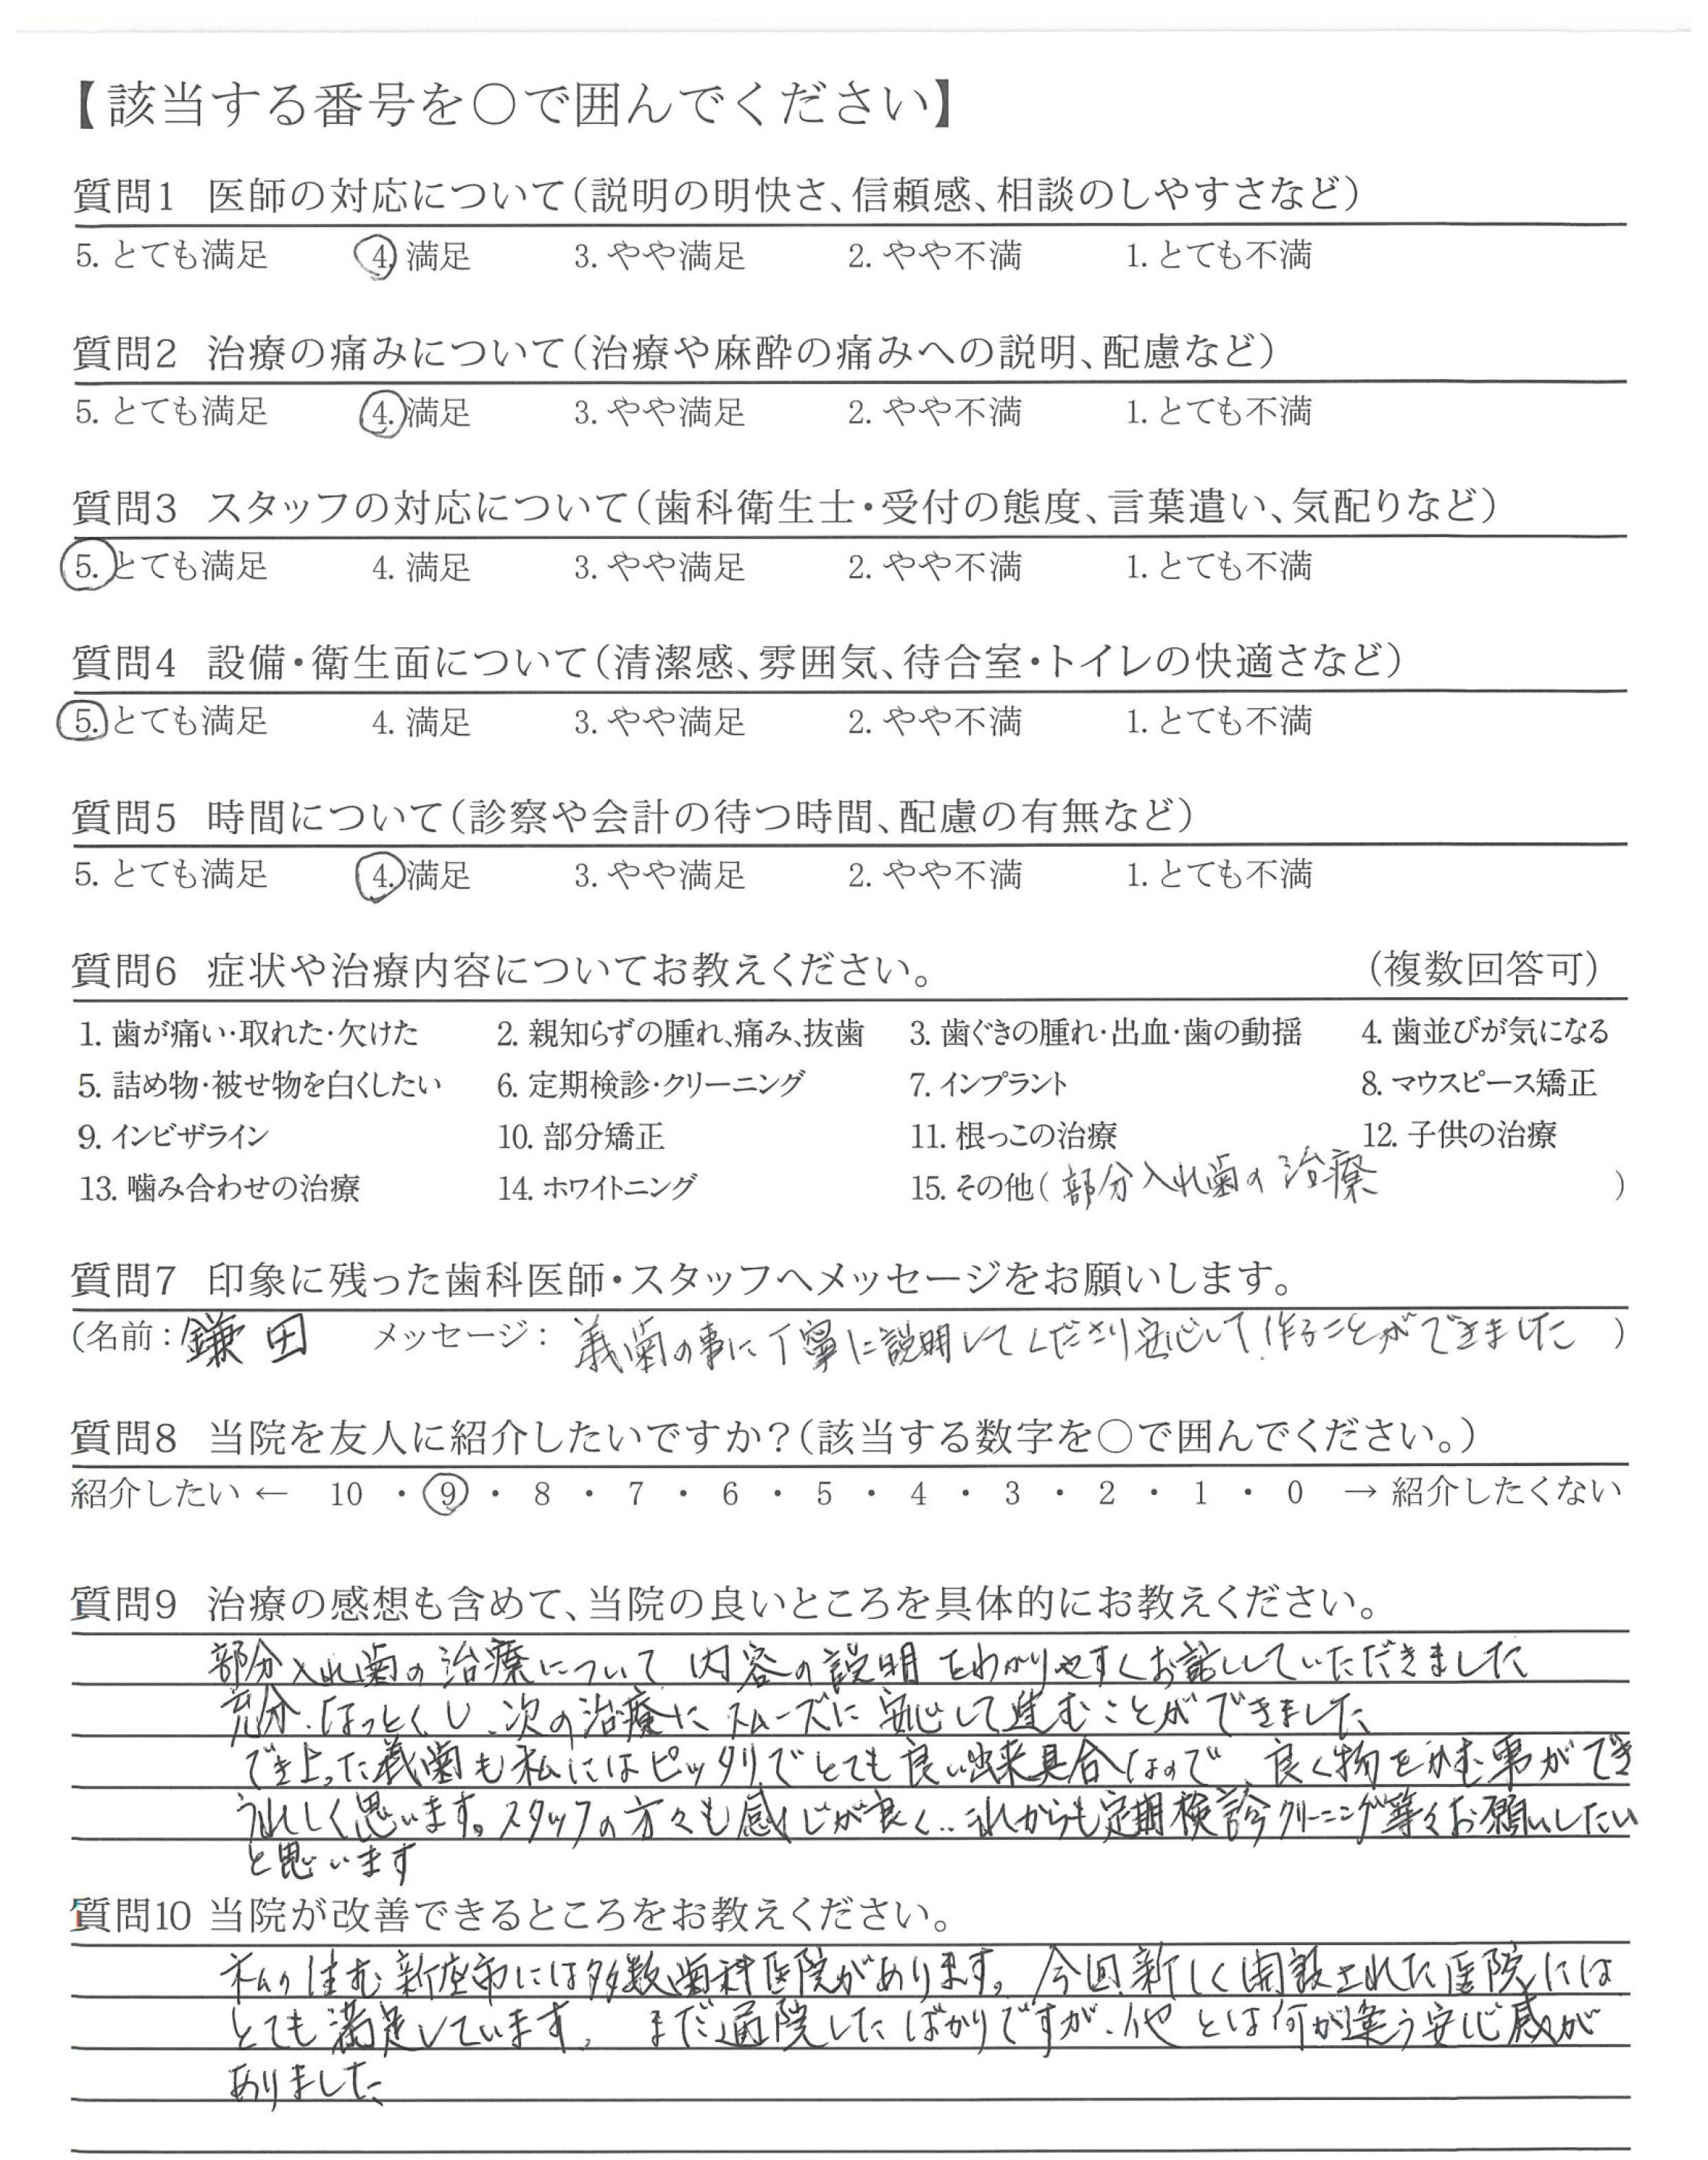 【該当する番号を○で囲んでください】
質問1 医師の対応について(説明の明快さ、信頼感、相談のしやすさなど)
5. とても満足 4. 満足 3. やや満足 2. やや不満 1. とても不満
質問2 治療の痛みについて(治療や麻酔の痛みへの説明、配慮など)
5. とても満足 4. 満足 3. やや満足 2. やや不満 1. とても不満
質問3 スタッフの対応について(歯科衛生士・受付の態度、言葉遣い、気配りなど)
5. とても満足 4. 満足 3. やや満足 2. やや不満 1. とても不満
質問4 設備・衛生面について(清潔感、雰囲気、待合室・トイレの快適さなど)
5. とても満足 4. 満足 3. やや満足 2. やや不満 1. とても不満
質問5 時間について(診察や会計の待つ時間、配慮の有無など)
5. とても満足 4. 満足 3. やや満足 2. やや不満 1. とても不満
質問6 症状や治療内容についてお教えください。 (複数回答可)
1. 歯が痛い・取れた・欠けた 2. 親知らずの腫れ、痛み、抜歯 3. 歯ぐきの腫れ・出血・歯の動揺 4. 歯並びが気になる
5. 詰め物・被せ物を白くしたい 6. 定期検診・クリーニング 7. インプラント 8. マウスピース矯正
9. インビザライン 10. 部分矯正 11. 根っこの治療 12. 子供の治療
13. 噛み合わせの治療 14. ホワイトニング 15. その他(部分入れ歯の治療)
質問7 印象に残った歯科医師・スタッフへメッセージをお願いします。
(名前:鎌田 メッセージ:義歯の事に丁寧に説明してくださり安心して作ることができました)
質問8 当院を友人に紹介したいですか?(該当する数字を○で囲んでください。)
紹介したい ← 10 ・ 9 ・ 8 ・ 7 ・ 6 ・ 5 ・ 4 ・ 3 ・ 2 ・ 1 ・ 0 → 紹介したくない
質問9 治療の感想も含めて、当院の良いところを具体的にお教えください。
部分入れ歯の治療について 内容の説明をわかりやすくお話ししていただきました
充分、なっとくし、次の治療にスムーズに安心して進むことができました
でき上った義歯も私にはピッタリでとても良い出来具合なので 良く物をかむ事ができ
うれしく思います。スタッフの方々も感じが良く‥これからも定期検診クリーニング等々お願いしたい
と思います
質問10 当院が改善できるところをお教えください。
私の住む新座市には多数歯科医院があります。今回新しく開設された医院には
とても満足しています。 まだ通院したばかりですが、他とは何が違う安心感が
ありました